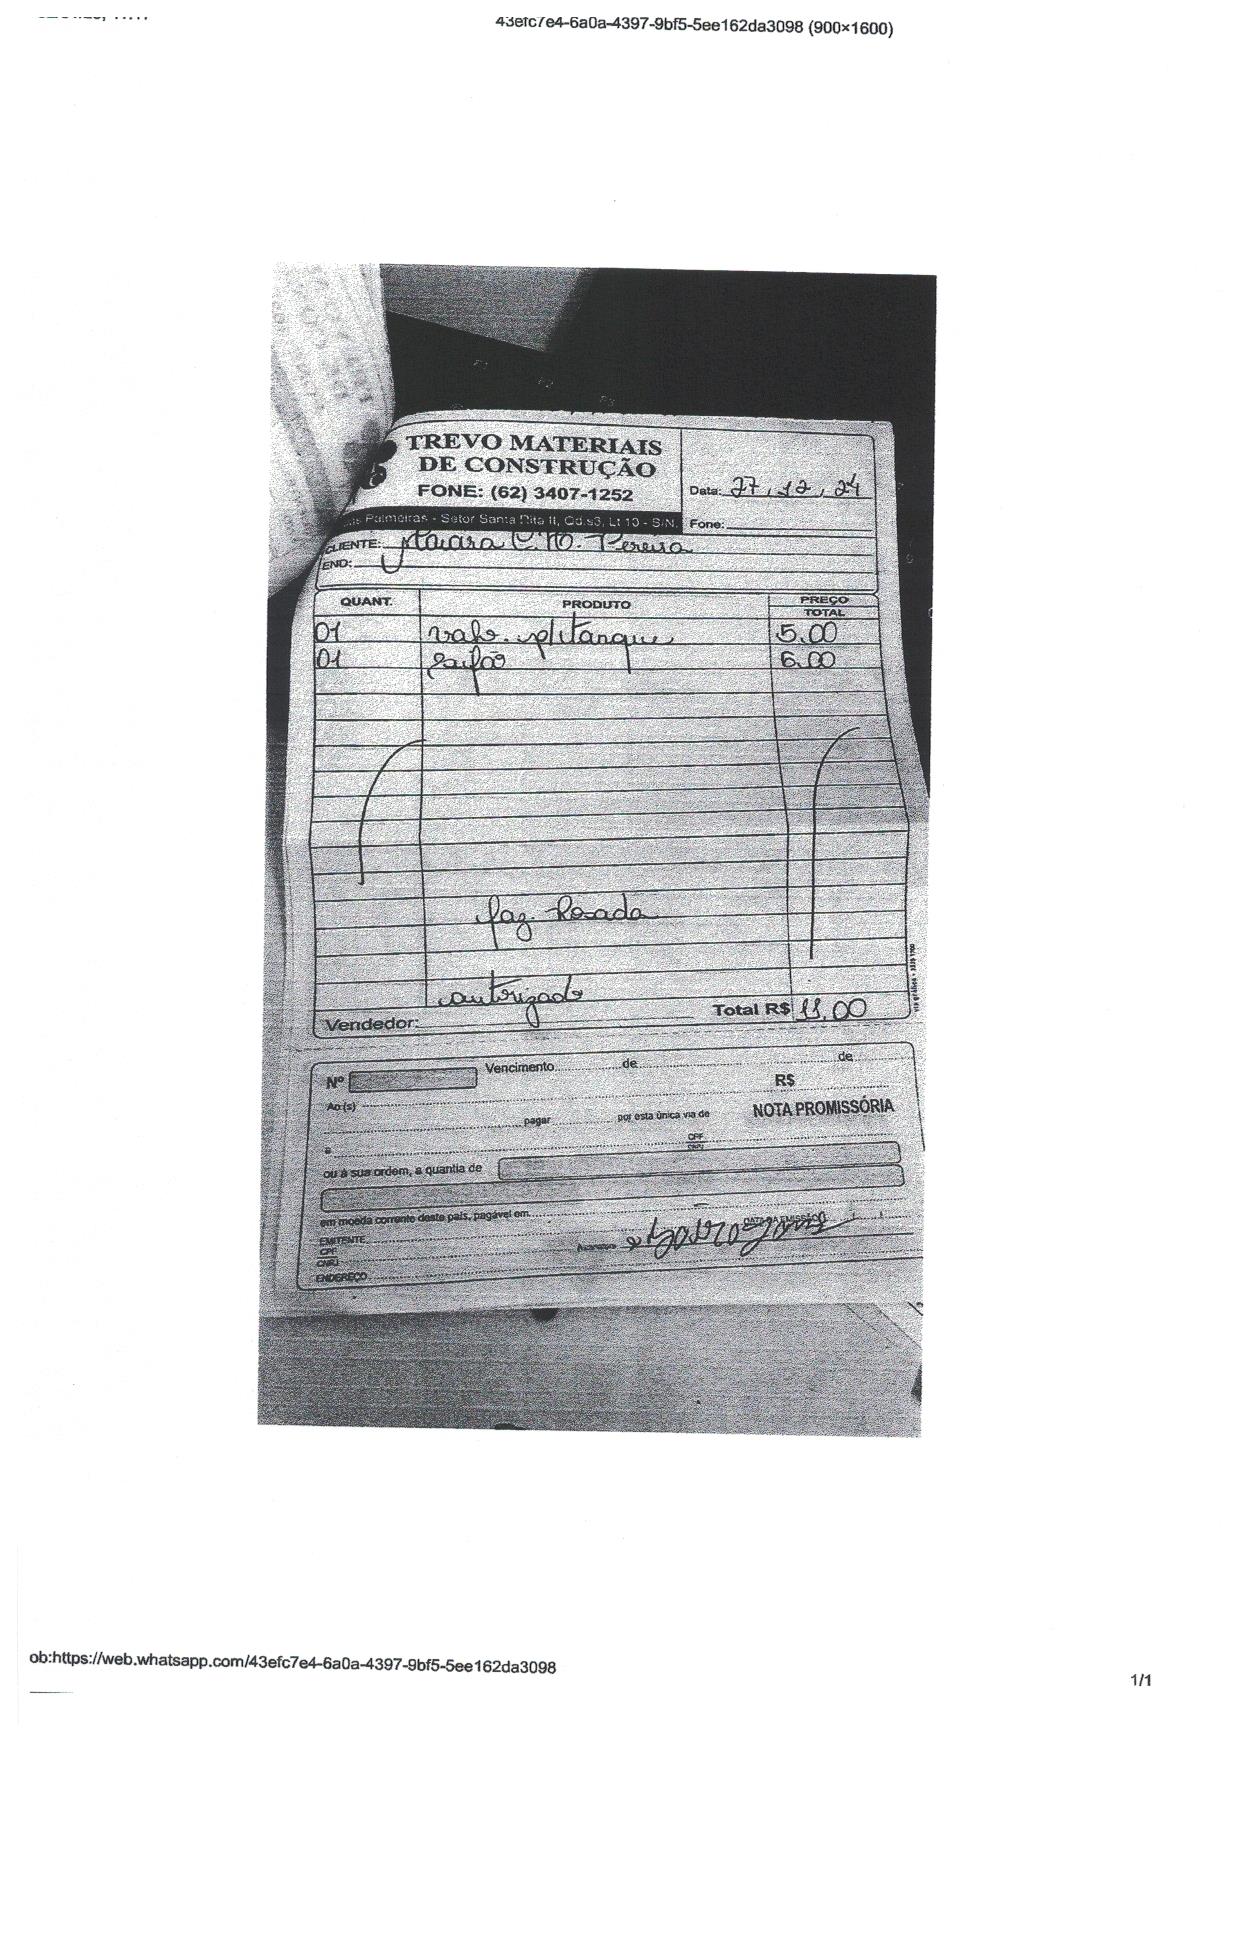 43efc7e4-6a0a-4397-9bf5-5ee162da3098 (900×1600)
TREVO MATERIAIS
DE CONSTRUÇÃO
FONE: (62) 3407-1252
Palmeiras - Setor Santa Rita II, Qd.s3, Lt 10 - S/N.
Data: 27, 12, 24
Fone:
CLIENTE: Pereira
END:
QUANT. PRODUTO PREÇO TOTAL
01 valv. p/ tanque 5.00
01 sifão 6.00
faz. Rosada
autorizado
Vendedor: Total R$ 11.00
Nº Vencimento de de
R$
Ao(s)
pagar por esta única via de NOTA PROMISSÓRIA
a CPF CNPJ
ou à sua ordem, a quantia de
em moeda corrente deste país, pagável em
EMITENTE
CPF
CNPJ
ENDEREÇO
ob:https://web.whatsapp.com/43efc7e4-6a0a-4397-9bf5-5ee162da3098
1/1